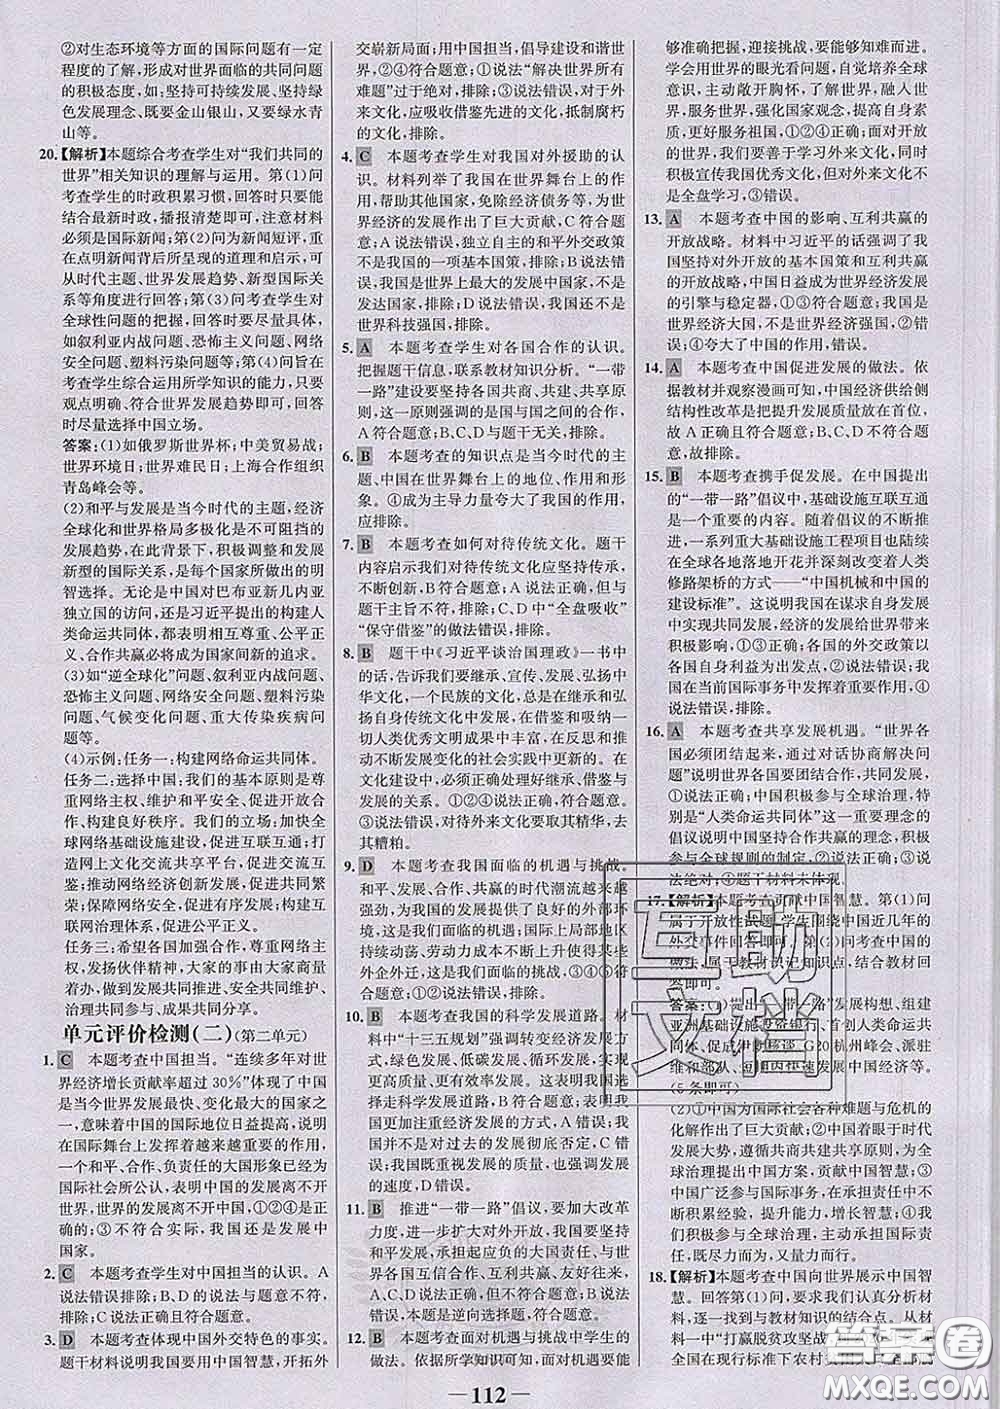 ②对生态环境等方面的国际问题有一定
程度的了解,形成对世界面临的共同问题
的积极态度,如:坚持可持续发展、坚持绿
色发展理念、既要金山银山,又要绿水青
山等。
20.【解析】本题综合考查学生对“我们共同的
世界”相关知识的理解与运用。第(1)问
考查学生的时政积累习惯,回答时只要能
结合最新时政,播报清楚即可,注意材料
必须是国际新闻;第(2)问为新闻短评,重
在点明新闻背后所呈现的道理和启示,可
从时代主题、世界发展趋势、新型国际关
系等角度进行回答;第(3)问考查学生对
全球性问题的把握,回答时要尽量具体,
如叙利亚内战问题、恐怖主义问题、网络
安全问题、塑料污染问题等;第(4)问旨在
考查学生综合运用所学知识的能力,只要
观点明确、符合世界发展趋势即可,回答
时尽量选择中国立场。
答案:(1)如俄罗斯世界杯;中美贸易战;
世界环境日;世界难民日;上海合作组织
青岛峰会等。
(2)和平与发展是当今时代的主题,经济
全球化和世界格局多极化是不可阻挡的
发展趋势,在此背景下,积极调整和发展
新型的国际关系,是每个国家所做出的明
智选择。无论是中国对巴布亚新几内亚
独立国的访问,还是习近平提出的构建人
类命运共同体,都表明相互尊重、公平正
义、合作共赢必将成为国家间新的追求。
(3)如“逆全球化”问题、叙利亚内战问题、
恐怖主义问题、网络安全问题、塑料污染
问题、气候变化问题、重大传染疾病问
题等。
(4)示例:任务一:构建网络命运共同体。
任务二:选择中国;我们的基本原则是尊
重网络主权、维护和平安全、促进开放合
作、构建良好秩序。我们的立场:加快全
球网络基础设施建设,促进互联互通;
打造网上文化交流共享平台,促进交流互
鉴;推动网络经济创新发展,促进共同繁
荣;保障网络安全,促进有序发展;构建互
联网治理体系,促进公平正义。
任务三:希望各国加强合作,尊重网络主
权,发扬伙伴精神,大家的事由大家商量
着办,做到发展共同推进、安全共同维护、
治理共同参与、成果共同分享。
单元评价检测(二)(第二单元)
1. C 本题考查中国担当。“连续多年对世
界经济增长贡献率超过30%”体现了中国
是当今世界发展最快、变化最大的国家之
一,意味着中国的国际地位日益提高,说明
在国际舞台上发挥着越来越重要的作用,
一个和平、合作、负责的大国形象已经为
国际社会所公认,表明中国的发展离不开
世界,世界的发展离不开中国,①②④是正
确的;③不符合实际,我国还是发展中
国家。
2. C 本题考查学生对中国担当的认识。A
说法错误排除;B、D的说法与题意不符,
排除;C说法正确且符合题意。
3. D 本题考查体现中国外交特色的事实。
题干材料说明我国要用中国智慧,开拓外
交崭新局面;用中国担当,倡导建设和谐世
界,②④符合题意;①说法“解决世界所有
难题”过于绝对,排除;③说法错误,对于外
来文化,应吸收借鉴先进的文化,抵制腐朽
的文化,排除。
4. C 本题考查学生对我国对外援助的认
识。材料列举了我国在世界舞台上的作
用,帮助其他国家,免除经济债务等,为世
界经济的发展作出了巨大贡献,C符合题
意;A说法错误,独立自主的和平外交政策
不是我国的一项基本国策,排除;B说法错
误,我国是世界上最大的发展中国家,不是
发达国家,排除;D说法错误,我国还不是
世界科技强国,排除。
5. A 本题考查学生对各国合作的认识。
把握题干信息,联系教材知识分析。“一带
一路”建设要坚持各国共商、共建、共享原
则,这一原则强调的是国与国之间的合作,
A符合题意;B、C、D与题干无关,排除。
6. B 本题考查的知识点是当今时代的主
题、中国在世界舞台上的地位、作用和形
象。④成为主导力量夸大了我国的作用,
应排除。
7. B 本题考查如何对待传统文化。题干
内容启示我们对待传统文化应坚持传承,
不断创新,B符合题意;A说法正确,但与题
干主旨不符,排除;C、D中“全盘吸收”
“保守借鉴”的做法错误,排除。
8. B 题干中《习近平谈治国理政》一书中
的话,告诉我们要继承、宣传、发展、弘扬中
华文化,一个民族的文化,总是在继承和弘
扬自身传统文化中发展,在借鉴和吸纳一
切人类优秀文明成果中丰富,在反思和推
动不断发展变化的社会实践中更新的。在
文化建设中,必须处理好继承、借鉴与
发展的关系。①②④说法正确,符合题意。
③说法错误,对待外来文化要取其精华,去
其糟粕。
9. D 本题考查我国面临的机遇与挑战。
和平、发展、合作、共赢的时代潮流越来越
强劲,为我国的发展提供了良好的外部环
境,这是我们面临的机遇;国际上局部地区
动荡、劳动力成本不断上升使得某些
外企外迁,这是我们面临的挑战,③④⑤符
合题意。
10. B 本题考查我国的科学发展道路。材
料中“十三五规划”强调转变经济发展方
式,绿色发展、低碳发展、循环发展,实现
更高质量的发展,这都说明我国要走科
学发展道路,B符合题意;A错误,我国在
发展中更加注重经济发展的方式;C错误,我
国并不是对过去的发展彻底否定,C错
误;我国既重视发展的质量,也重视发展
的速度,D错误。
11. B 推进“一带一路”倡议,要加大改革
力度,进一步扩大对外开放,我国要坚持
和平发展,承担起应负的大国责任,与世
界各国互信合作、互利共赢、友好往来,
A、C、D正确,但不符合题意,B说法错误,
符合题意,本题是逆向选择题,符合题意。
12. B 本题考查面对机遇与挑战中学生的
做法。依据所学知识可知,面对机遇要能
够准确把握,迎接挑战,要能够知难而进。
学会用世界的眼光看问题,自觉培养全球
意识,主动敞开胸怀,了解世界,融入世
界,服务世界,强化国家观念,提高自身素
质,更好服务祖国,①②④正确;面对开放
的世界,我们要学习外来文化,但不能
放弃我国优秀文化,同时对待外来文化不
是全盘学习,③错误。
13. A 本题考查中国的影响、互利共赢的
开放战略。材料中习近平的话强调了我
国坚持对外开放的基本国策和互利共赢
的开放战略,中国日益成为世界经济发展
的引擎与稳定器,①③符合题意;我国是
世界经济大国,不是世界经济强国,②错
误;④夸大了中国的作用,错误。
14. A 本题考查中国促进发展的做法。依
据教材并观察漫画可知,中国经济供给侧
结构性改革是把提升发展质量放在首位,
故A正确且符合题意;B、C、D不符合题
意,故排除。
15. B 本题考查携手促发展。在中国提出
的“一带一路”倡议中,基础设施互联互通
是一个重要的内容。随着倡议的不断推
进,一系列重大基础设施工程项目也陆续
在全球各地落地开花并深刻改变着人类
修路架桥的方式——“中国机械和中国的
建设标准”。这说明我国在谋求自身发展
中实现共同发展,与世界共享发展机遇,
经济的发展给世界带来
动力,①③正确;各国的外交政策以
自身国家利益为出发点,②说法错误;我国
在当前国际事务中发挥着重要作用,④
说法错误,排除。
16. A 本题考查共享发展机遇。“世界各
国必须团结起来,通过对话协商解决问
题”说明世界各国要团结合作,共同发展,
①正确;中国积极参与全球治理,
特别是“人类命运共同体”这一重要理念的
倡议说明中国坚持合作共赢的理念,积极
参与全球规则的制定,②正确;③说
法绝对;④题干材料未体现。
17.【解析】本题考查贡献中国智慧。第(1)问
属于开放性试题,学生围绕中国近几年的
外交事件回答即可。第(2)问考查中国的
做法,属于教材识记知识点,结合教材回
答即可。
答案:(1)提出“一带一路”发展构想、组建
亚洲基础设施投资银行、首
轮、促成伊朗核谈、G20杭州峰会、派驻
维和部队、短期内快速发展经济等。
(5条即可)
(2)①中国为国际社会各种难题与危机的
化解作出了巨大贡献;②中国激于责任和
大义,遵循共商共建共享原则,为
全球治理提出中国方案,贡献中国智慧;③
中国广泛参与国际事务,在承担责任中
不断积累经验,提升贡献能力;④我
们始终与世界合作,主动承担国际责任,
尽力而为,又量力而行。
18.【解析】本题考查中国向世界展示中国智
慧。回答第(1)问,要求我们认真分析材
料,找到与教材知识的结合点。从材
料一中“打赢脱贫攻坚战
全国在现行标准下农村贫困人口全部脱
112
互助文档
答案圈
MXQE.COM